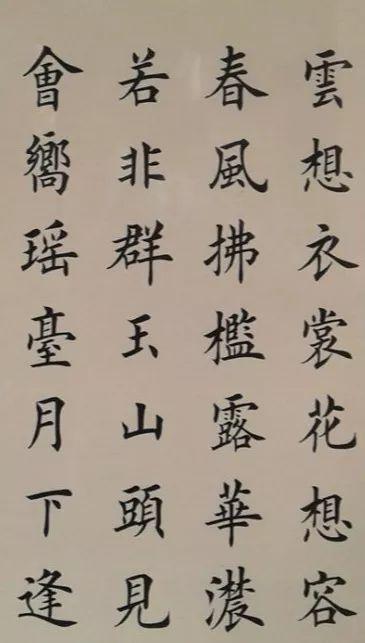 雲想衣裳花想容
春風拂檻露華濃
若非群玉山頭見
會嚮瑤臺月下逢